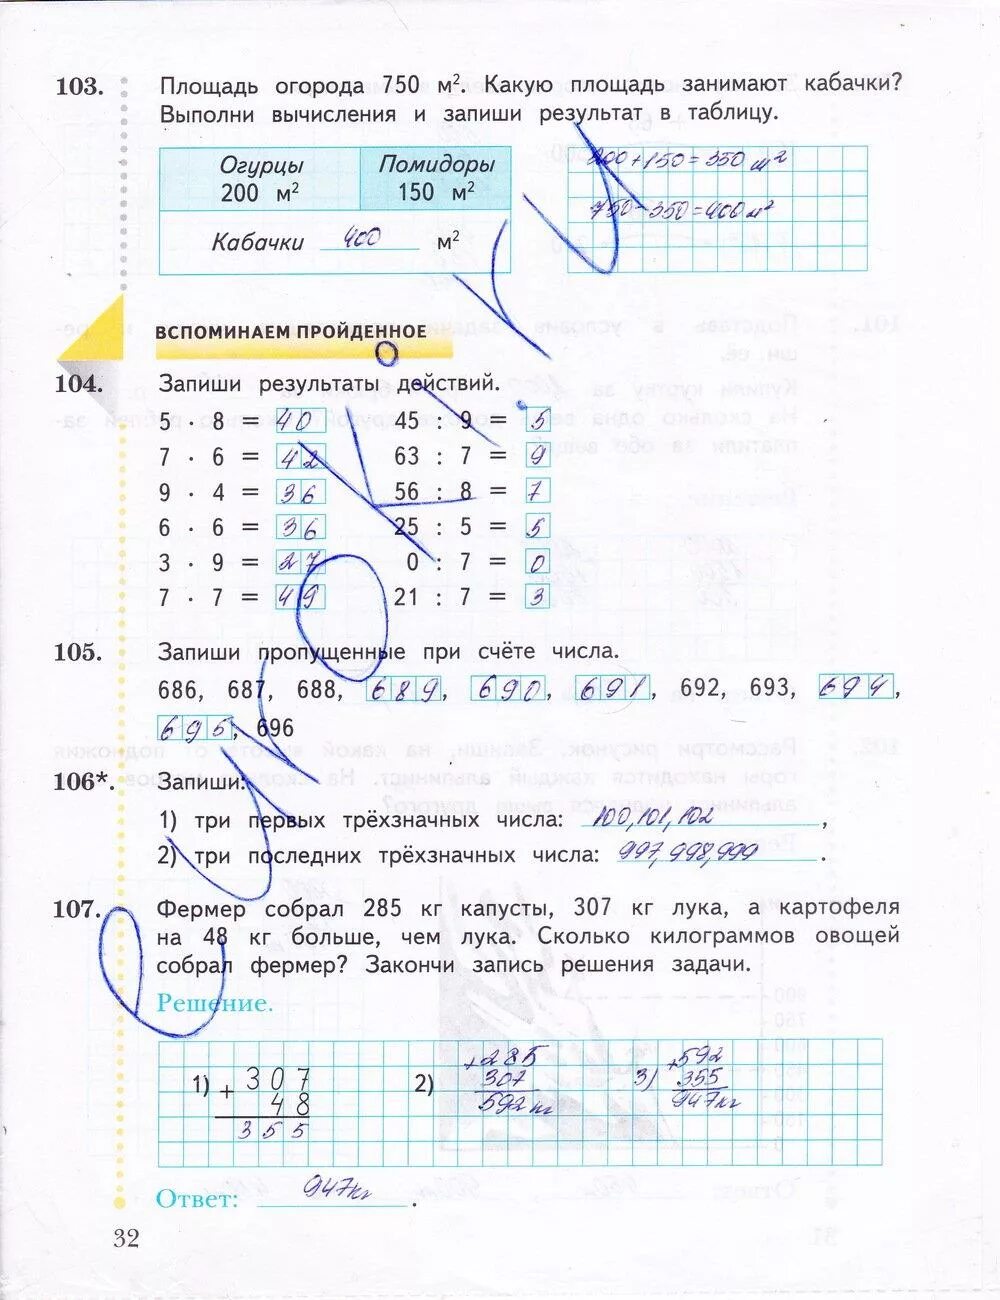 103. Площадь огорода 750 м². Какую площадь занимают кабачки?
Выполни вычисления и запиши результат в таблицу.
Огурцы Помидоры
200 м² 150 м²
Кабачки 400 м²
200+150=350 м²
750-350=400м²
ВСПОМИНАЕМ ПРОЙДЕННОЕ
104. Запиши результаты действий.
5 · 8 = 40 45 : 9 = 5
7 · 6 = 42 63 : 7 = 9
9 · 4 = 36 56 : 8 = 7
6 · 6 = 36 25 : 5 = 5
3 · 9 = 27 0 : 7 = 0
7 · 7 = 49 21 : 7 = 3
105. Запиши пропущенные при счёте числа.
686, 687, 688, 689, 690, 691, 692, 693, 694,
695, 696
106*. Запиши:
1) три первых трёхзначных числа: 100,101,102,
2) три последних трёхзначных числа: 997,998,999.
107. Фермер собрал 285 кг капусты, 307 кг лука, а картофеля
на 48 кг больше, чем лука. Сколько килограммов овощей
собрал фермер? Закончи запись решения задачи.
Решение.
1) + 307
48
355
2) +285
307
592кг
3) +592
355
947кг
Ответ: 947кг.
32